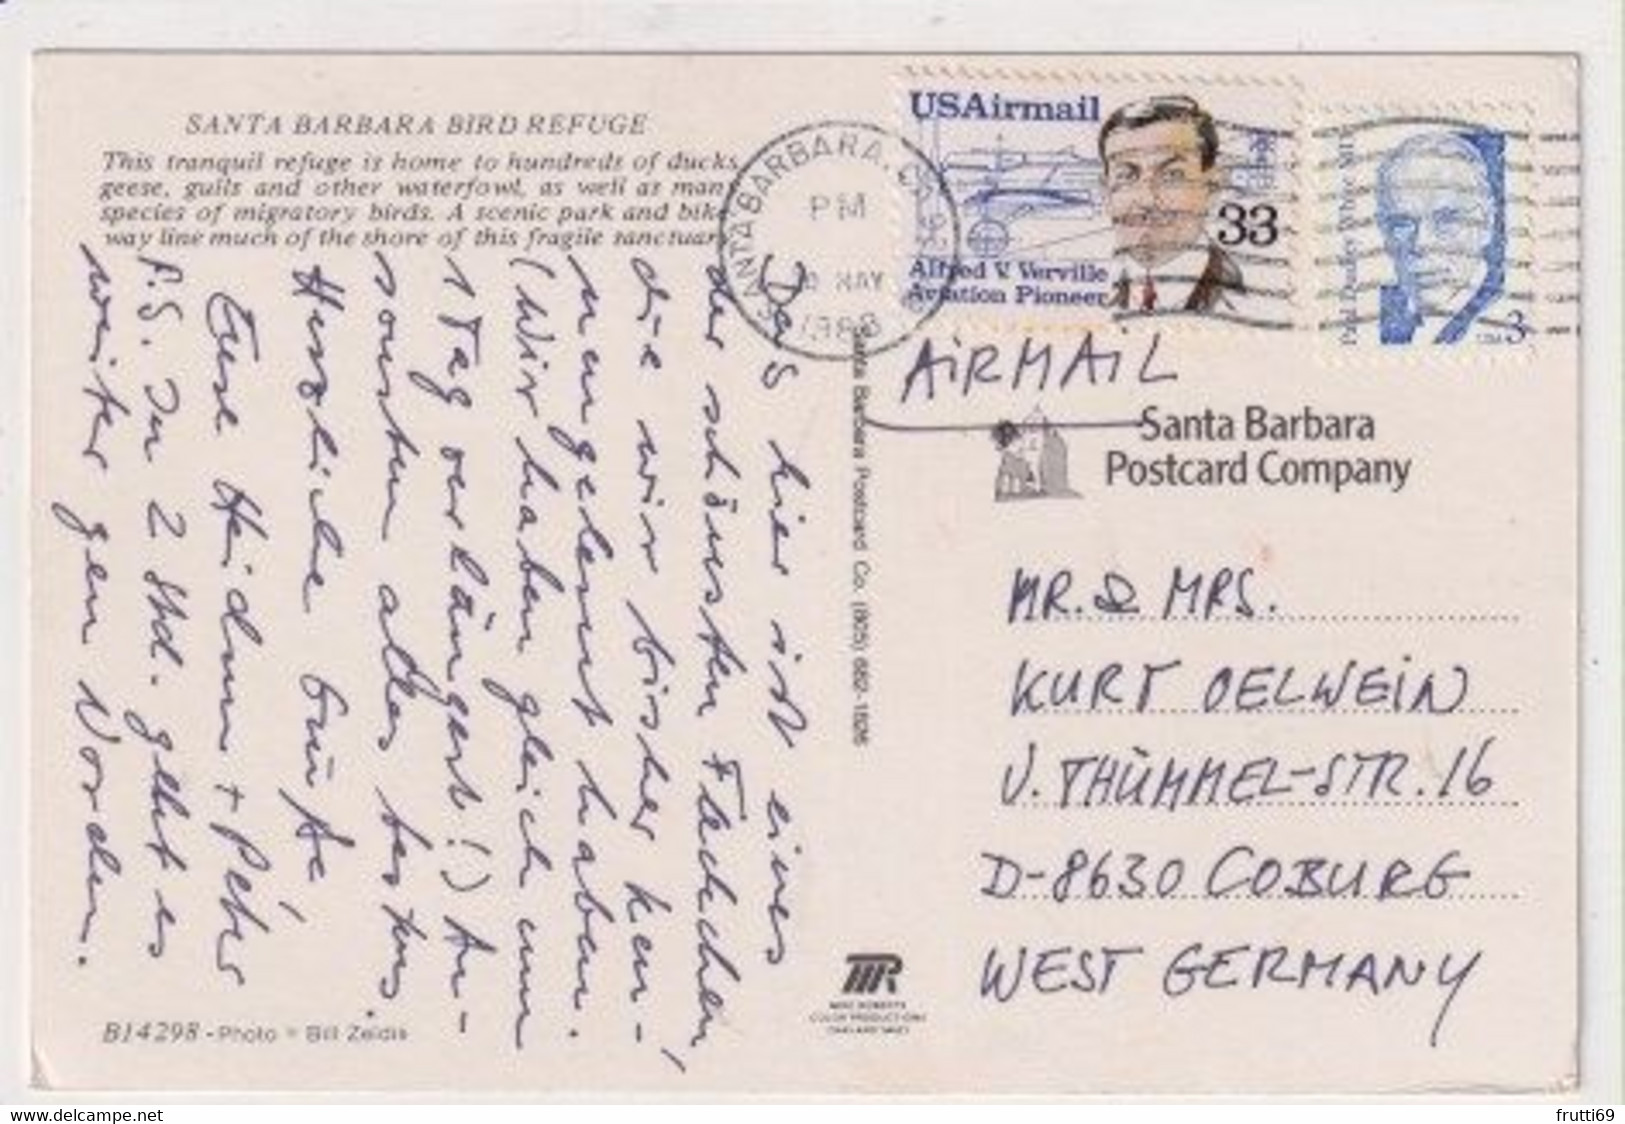 SANTA BARBARA BIRD REFUGE
This tranquil refuge is home to hundreds of ducks,
geese, gulls and other waterfowl, as well as many
species of migratory birds. A scenic park and bike
way line much of the shore of this fragile sanctuary.
Das hier ist eines
der schönsten Fleckchen,
die wir bisher ken-
nengelernt haben.
(Wir haben gleich um
1 Tag verlängert!) An-
sonsten alles bestens.
Herzliche Grüße
Eure Heidrun + Peter
P.S. In 2 Std. geht es
weiter gen Norden.
B14298 - Photo - Bill Zeldis
Santa Barbara Postcard Co. (805) 682-1826
SANTA BARBARA, CA
PM
MAY
1988
USAirmail
33
Alfred V. Verville
Aviation Pioneer
Paul Dudley White MD
USA 3
AIRMAIL
Santa Barbara
Postcard Company
MR. & MRS.
KURT OELWEIN
V. THÜMMEL-STR. 16
D-8630 COBURG
WEST GERMANY
MIKE ROBERTS
COLOR PRODUCTIONS
OAKLAND 94621
www.delcampe.net
frutti69